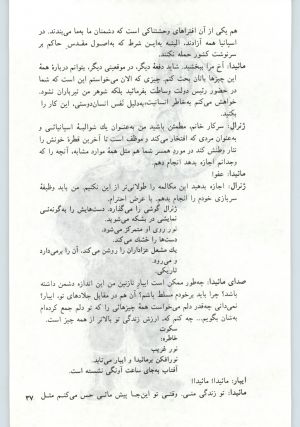 هم یکی از آن افتراهای وحشتناکی است که دشمنان ما بما می‌بندند. در
اسپانیا همه آزادند، البته به‌این شرط که به‌اصول مقدس حاکم بر
سرنوشت کشور حمله نکنند.
مائیدا: آخ مرا ببخشید. شاید دفعهٔ دیگر، در موقعیتی دیگر، بتوانم دربارهٔ همهٔ
این چیزها باتان بحث کنم. چیزی که الان می‌خواستم این است که شما
در حضور رئیس دولت وساطت بفرمائید بلکه شوهر من تیرباران نشود.
خواهش می‌کنم به‌خاطر انسانیت، به‌دلیل نفس انسان‌دوستی، این کار را
بکنید.
ژنرال: سرکار خانم، مطمئن باشید من به‌عنوان یک شوالیهٔ اسپانیائی و
به‌عنوان مردی که افتخار می‌کند و موظف است تا آخرین قطرهٔ خونش را
نثار وطنش کند در مورد همسر شما هم مثل همهٔ موارد مشابه، آنچه را که
وجدانم اجازه بدهد انجام دهم.
مائیدا: عفو!
ژنرال: اجازه بدهید این مکالمه را طولانی‌تر از این نکنیم. من باید وظیفهٔ
سربازی خودم را انجام بدهم. با عرض احترام.
ژنرال گوشی را می‌گذارد، دست‌هایش را به‌گونه‌ئی
نمایشی در تشکه می‌شوید.
نور روی او متمرکز می‌شود.
دست‌ها را خشک می‌کند.
یک مشعل عزاداران را روشن می‌کند، آن را برمی‌دارد
و می‌رود.
تاریکی.
صدای مائیدا: چه‌طور ممکن است ایبار نازنین من این اندازه دشمن داشته
باشد؟ چرا باید برخودم مسلط باشم؟ آن هم در مقابل جلادهای تو، ایبار؟
نمی‌دانی چه‌قدر دلم می‌خواست همهٔ چیزهائی را که تو دلم جمع کرده‌ام
به‌شان بگویم... چه کنم که، ارزش زندگی تو بالاتر از همه چیز است.
سکوت
خاطره:
نور غریب
نورافکن برمائیدا و ایبار می‌تابد.
آفتاب به‌جای ساعت آونگی نشسته است.
ایبار: مائیدا! مائیدا!
مائیدا: تو زندگی منی. وقتی تو این‌جا پیش مائی حس می‌کنیم مثل
۳۷